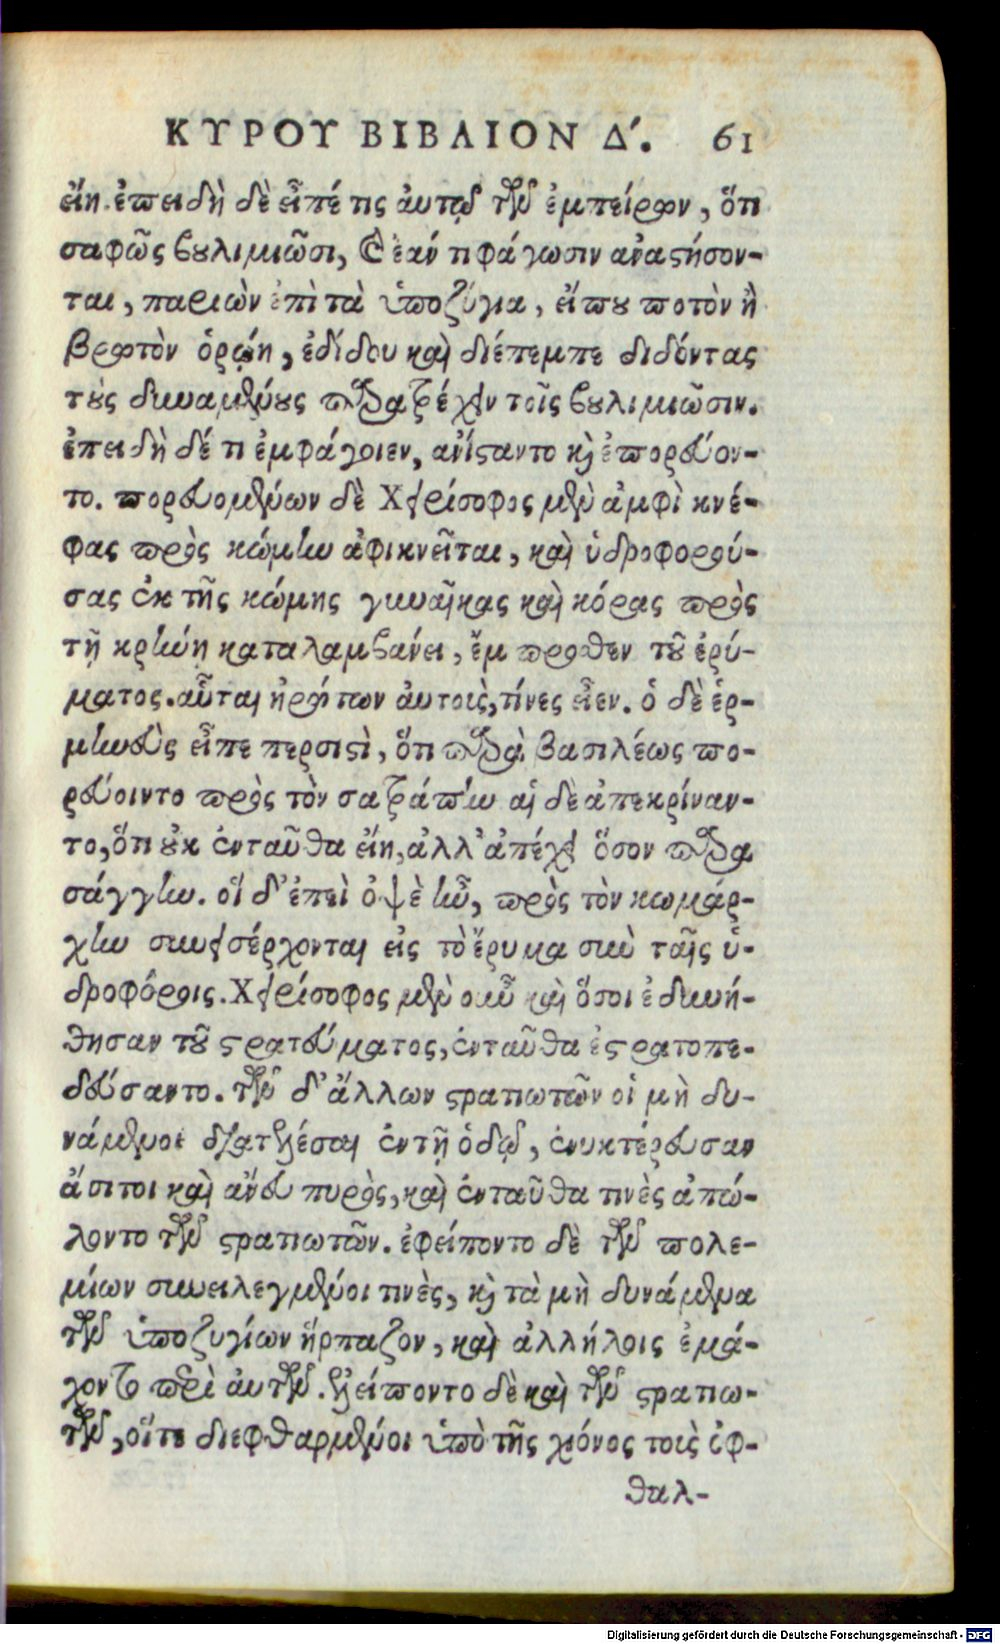 ΚΥΡΟΥ ΒΙΒΛΙΟΝ Δ΄. 61
εἴη. ἐπειδὴ δὲ εἶπέ τις ἀυτῷ τῶν ἐμπείρων, ὅτι
σαφῶς βουλιμιῶσι, καὶ ἐάν τι φάγωσιν ἀναστήσον-
ται, παριὼν ἐπὶ τὰ ὑποζύγια, εἴ που ποτὸν ἢ
βρωτὸν ὁρῴη, ἐδίδου καὶ διέπεμπε διδόντας
τοὺς δυναμένους παρατρέχειν τοῖς βουλιμιῶσιν.
ἐπειδὴ δέ τι ἐμφάγοιεν, ἀνίσταντο καὶ ἐπορεύον-
το. πορευομένων δὲ Χειρίσοφος μὲν ἀμφὶ κνέ-
φας πρὸς κώμην ἀφικνεῖται, καὶ ὑδροφορού-
σας ἐκ τῆς κώμης γυναῖκας καὶ κόρας πρὸς
τῇ κρήνῃ καταλαμβάνει, ἔμπροσθεν τοῦ ἐρύ-
ματος. αὗται ἠρώτων ἀυτοὺς, τίνες εἶεν. ὁ δὲ ἑρ-
μηνεὺς εἶπε περσιστὶ, ὅτι παρὰ βασιλέως πο-
ρεύοιντο πρὸς τὸν σατράπην αἱ δὲ ἀπεκρίναν-
το, ὅτι οὐκ ἐνταῦθα εἴη, ἀλλ' ἀπέχει ὅσον παρα
σάγγην. οἱ δ' ἐπεὶ ὀψὲ ἦν, πρὸς τὸν κωμάρ-
χην συνεισέρχονται εἰς τὸ ἔρυμα σὺν ταῖς ὑ-
δροφόροις. Χειρίσοφος μὲν οὖν καὶ ὅσοι ἐδυνή-
θησαν τοῦ στρατεύματος, ἐνταῦθα ἐστρατοπε-
δεύσαντο. τῶν δ' ἄλλων στρατιωτῶν οἱ μὴ δυ-
νάμενοι διατελέσαι ἐν τῇ ὁδῷ, ἐνυκτέρευσαν
ἄσιτοι καὶ ἄνευ πυρὸς, καὶ ἐνταῦθα τινὲς ἀπώ-
λοντο τῶν στρατιωτῶν. ἐφείποντο δὲ τῶν πολε-
μίων συνειλεγμένοι τινὲς, καὶ τὰ μὴ δυνάμενα
τῶν ὑποζυγίων ἥρπαζον, καὶ ἀλλήλοις ἐμά-
χοντο περὶ ἀυτῶν. ἐλείποντο δὲ καὶ τῶν στρατιω-
τῶν, οἵτε διεφθαρμένοι ὑπὸ τῆς χιόνος τοὺς ὀφ-
θαλ-
Digitalisierung gefördert durch die Deutsche Forschungsgemeinschaft - DFG